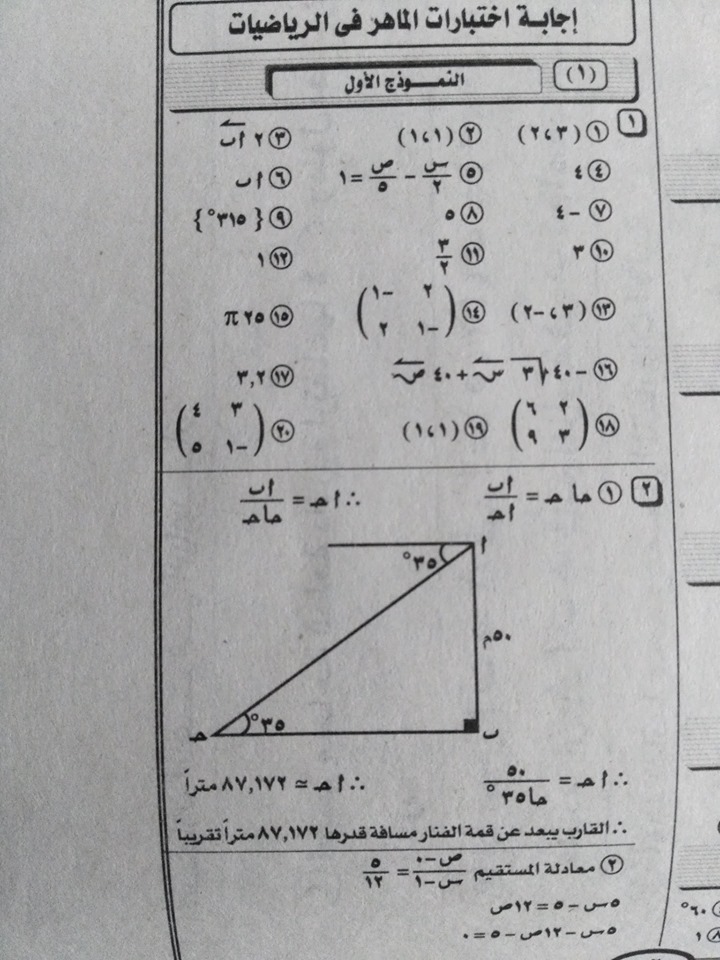 إجابة اختبارات الماهر فى الرياضيات
(١) النموذج الأول
١ ① (٣ ، ٢) ② (١ ، ١) ③ ٢ أب
④ ٤ ⑤ س/٢ - ص/٥ = ١ ⑥ أب
⑦ -٤ ⑧ ٥ ⑨ {٣١٥°}
⑩ ٣ ⑪ ٣/٢ ⑫ ١
⑬ (٣ ، -٢) ⑭ (٢ -١ / -١ ٢) ⑮ ٢٥ π
⑯ -٤٠√٣ س + ٤٠ ص ⑰ ٣,٢
⑱ (٢ ٦ / ٣ ٩) ⑲ (١ ، ١) ⑳ (٣ ٤ / -١ ٥)
٢ ① حا حـ = أب/أحـ ∴ أحـ = أب/حاحـ
أ
٣٥°
٥٠م
٣٥°
حـ ب
∴ أحـ = ٥٠/حا٣٥° ∴ أحـ ≃ ٨٧,١٧٢ متراً
∴ القارب يبعد عن قمة الفنار مسافة قدرها ٨٧,١٧٢ متراً تقريباً
② معادلة المستقيم ص-٠/س-١ = ٥/١٢
٥س - ٥ = ١٢ص
٥س - ١٢ص - ٥ = ٠
٦٠°
١